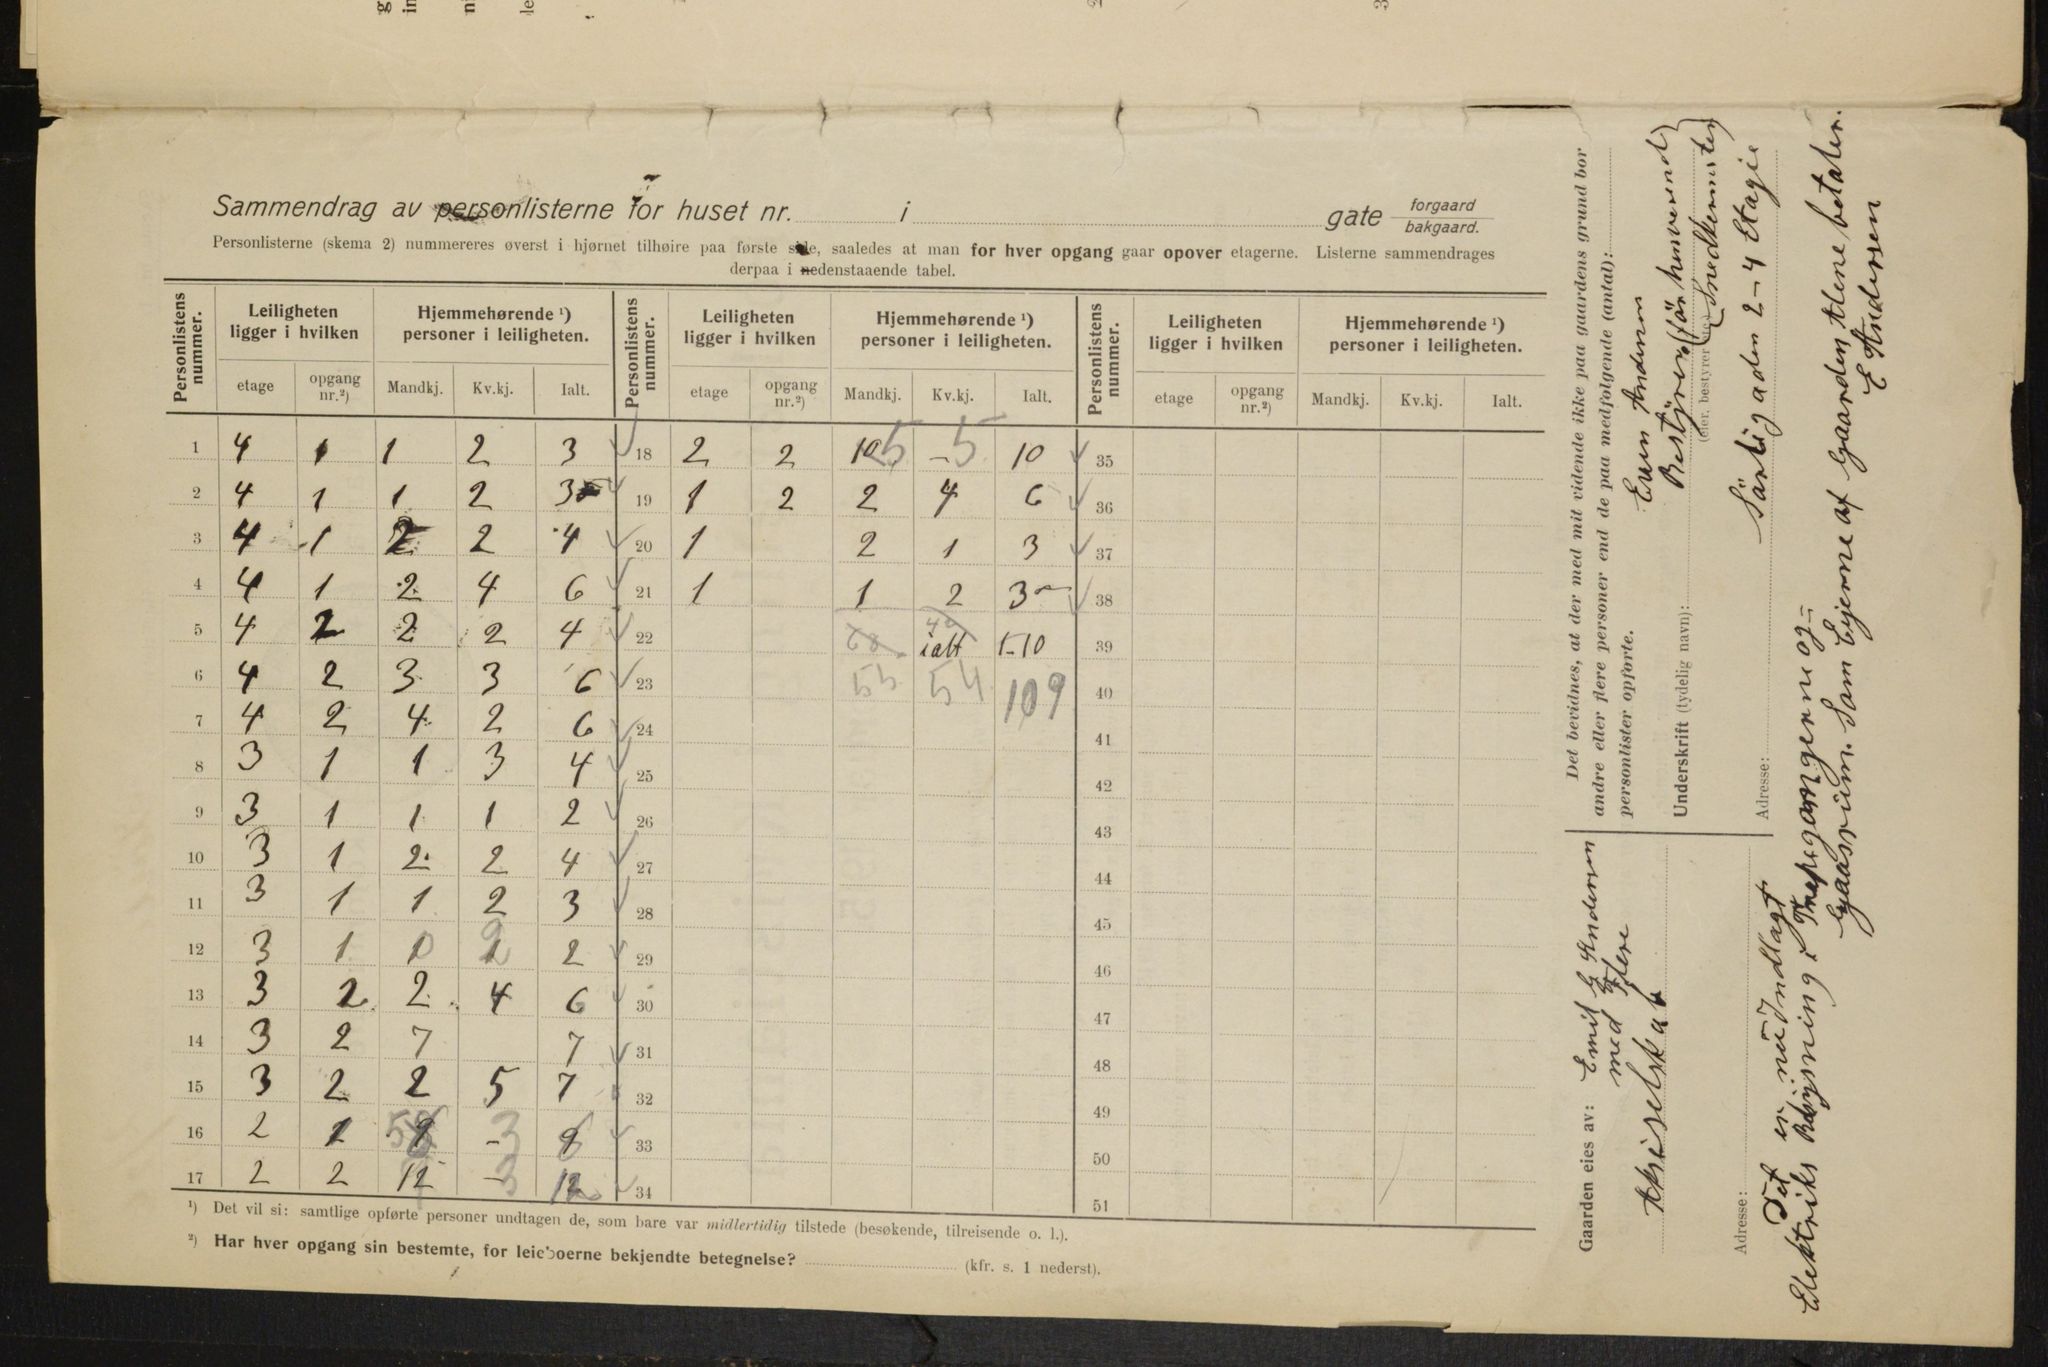 Sammendrag av personlisterne for huset nr. i gate forgaard bakgaard.
Personlisterne (skema 2) nummereres øverst i hjørnet tilhøire paa første side, saaledes at man for hver opgang gaar opover etagerne. Listerne sammendrages
derpaa i nedenstaaende tabel.
Personlistens nummer. Leiligheten ligger i hvilken Hjemmehørende ¹) personer i leiligheten. Personlistens nummer. Leiligheten ligger i hvilken Hjemmehørende ¹) personer i leiligheten. Personlistens nummer. Leiligheten ligger i hvilken Hjemmehørende ¹) personer i leiligheten.
etage opgang nr.²) Mandkj. Kv.kj. Ialt. etage opgang nr.²) Mandkj. Kv.kj. Ialt. etage opgang nr.²) Mandkj. Kv.kj. Ialt.
1 4 1 1 2 3 18 2 2 10 5 - 5 10 35
2 4 1 1 2 3 19 1 2 2 4 6 36
3 4 1 2 2 4 20 1 2 1 3 37
4 4 1 2 4 6 21 1 1 2 3 38
5 4 2 2 2 4 22 ialt 110 39
6 4 2 3 3 6 23 55 54 109 40
7 4 2 4 2 6 24 41
8 3 1 1 3 4 25 42
9 3 1 1 1 2 26 43
10 3 1 2 2 4 27 44
11 3 1 1 2 3 28 45
12 3 1 1 0 1 2 2 29 46
13 3 2 2 4 6 30 47
14 3 2 7 7 31 48
15 3 2 2 5 7 32 49
16 2 1 5 8 - 3 8 33 50
17 2 2 12 - 3 12 34 51
¹) Det vil si: samtlige opførte personer undtagen de, som bare var midlertidig tilstede (besøkende, tilreisende o. l.).
²) Har hver opgang sin bestemte, for leieboerne bekjendte betegnelse? (kfr. s. 1 nederst).
Det bevidnes, at der med mit vidende ikke paa gaardens grund bor
andre eller flere personer end de paa medfolgende (antal):
personlister opførte.
Andersen
Underskrift (tydelig navn): Bestyrer
(eier, bestyrer
Adresse: 2-4 Etagie
Gaarden eies av: Emil G Andersen
med Flere
Aktieselskab
Adresse:
Det er nu Indlagt
Elektriks Belysning i Trapegangene og
Gaasrum. Sam Ejerne af Gaarden Alene betaler.
E Andersen